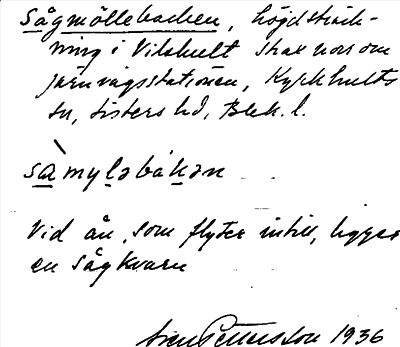 Sågmöllebacken, höjdsträck-
ning i Vilshult strax norr om
järnvägsstationen, Kyrkhults
sn, Listers hd, Blek. l.
sàmyləbákən
Vid ån, som flyter intill, ligger
en sågkvarn
Sven Pettersson 1936